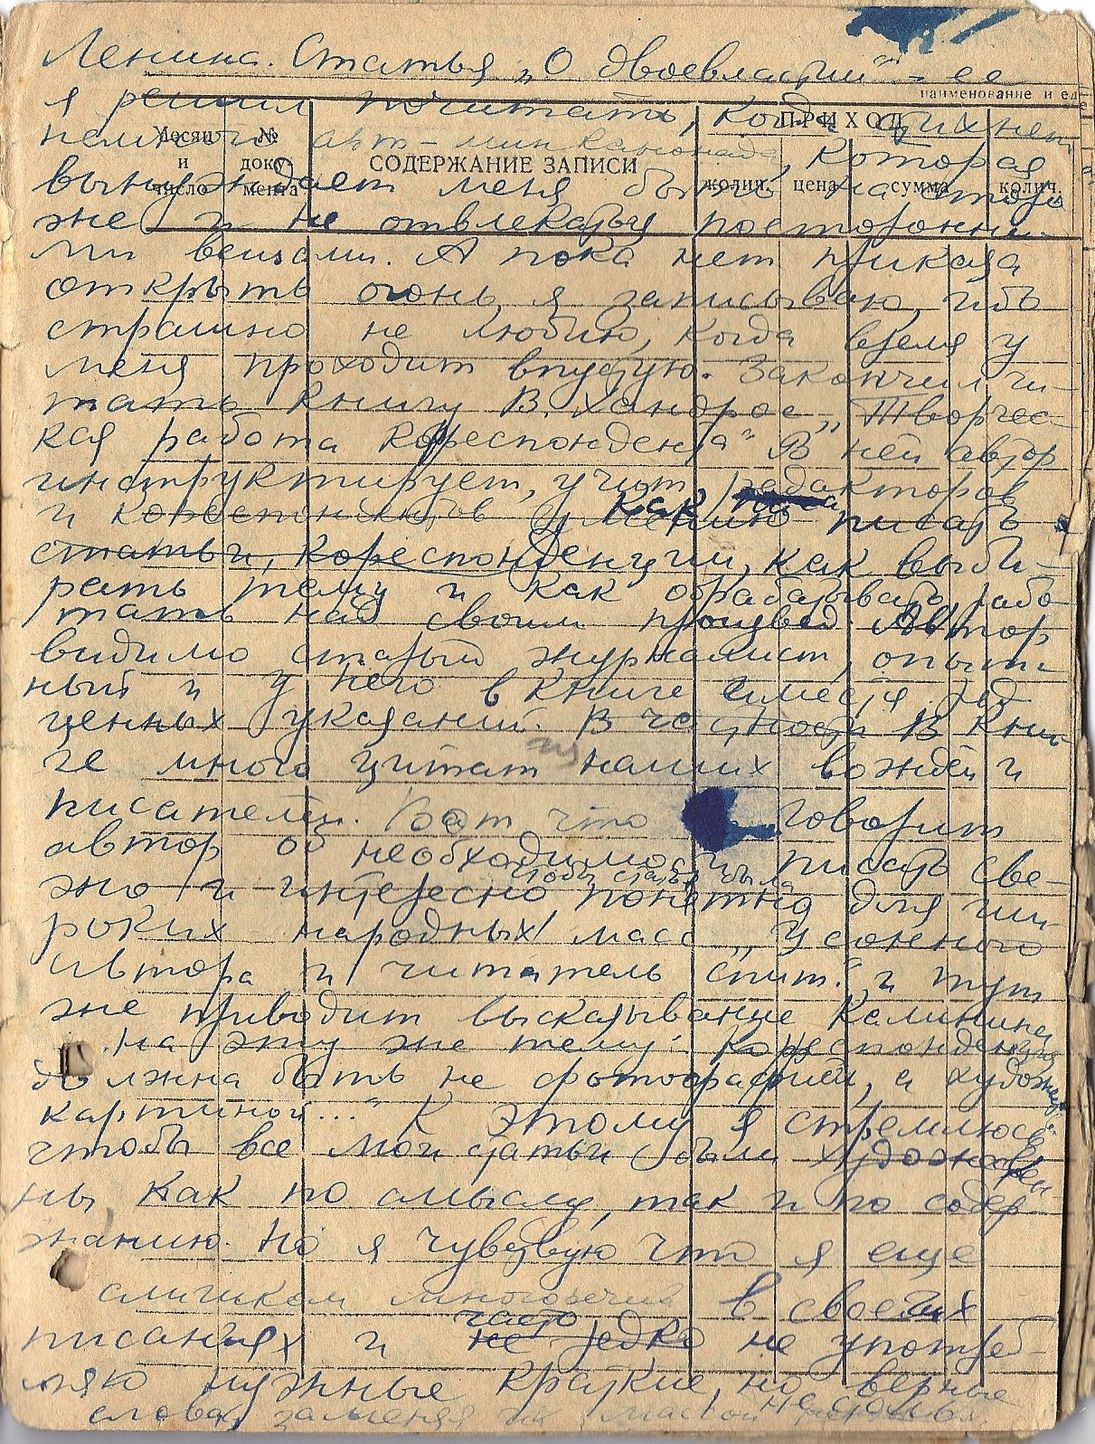 Ленина. Статья „О двоевластии" – ее
наименование и ед
я решил почитать, когда стихнет
ПРИХОД
немного арт-мин канонада, которая
Месяц и число
№ документа
СОДЕРЖАНИЕ ЗАПИСИ
колич. цена сумма колич.
вынуждает меня быть на сторо
же и не отвлекаться посторонни-
ми вещами. А пока нет приказа
открыть огонь я записываю, ибо
страшно не люблю, когда время у
меня проходит впустую. Закончил чи-
тать книгу В. Хандрос „Творчес-
кая работа кореспондента" В ней автор
инструктирует, учит редакторов
и кореспондентов умению как писать
статьи, кореспонденции, как выби-
рать тему и как обрабатывать рабо
тать над своим произвед. Автор
видимо старый журналист, опыт-
ный и у него в книге имеется ряд
ценных указаний. В частности В кни-
ге много цитат из наших вождей и
писателей. Вот что говорит
автор об необходимости писать све-
жо и интересно чтобы статья была понятна для ши
роких народных масс „У сонного
автора и читатель спит." и тут
же приводит высказывание Калинина
на эту же тему: Кореспонденция
должна быть не фотографией, а художеств
картиной..." К этому я стремлюсь
чтобы все мои статьи были
ны как по смыслу, так и по содер
жанию. Но я чувствую что я еще
слишком многоречив в своих
писаниях и не редко часто не употреб-
ляю нужные краткие, но верные
слова, заменяя их массой